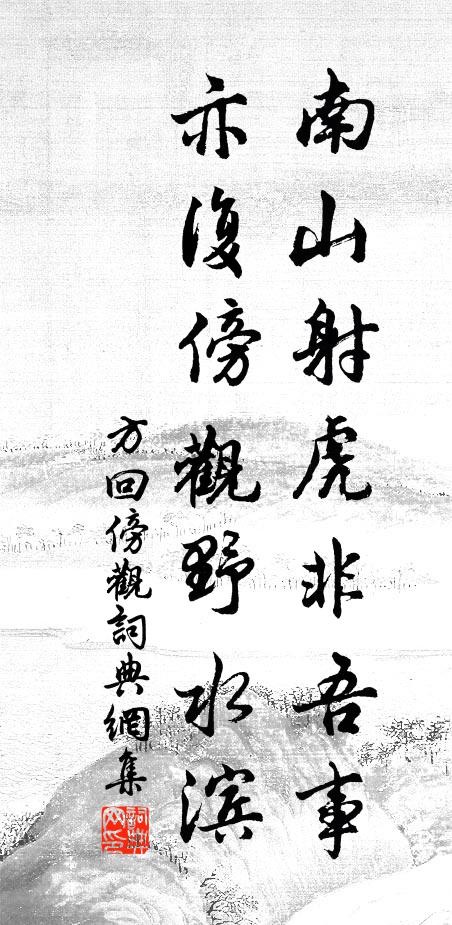 南山射虎非吾事
亦復傍觀野水滨
方回傍觀詞典網集